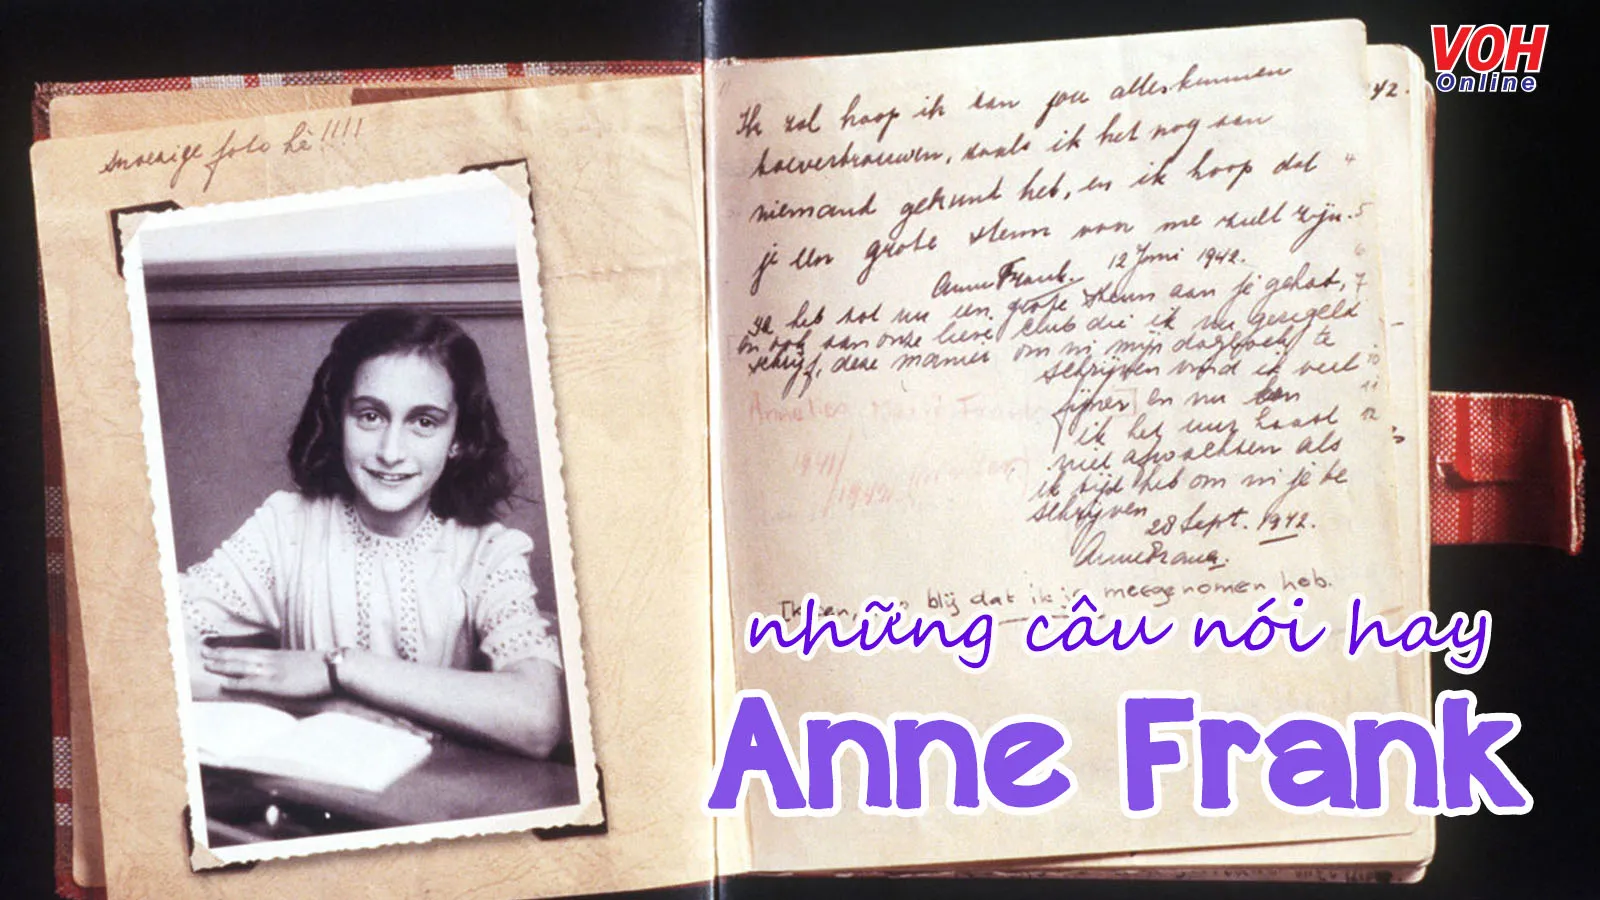 VOH
Online
snoezige foto hè!!!!
42.
Ik zal hoop ik aan jou alles kunnen
toevertrouwen, zoals ik het nog aan
niemand gekunt heb, en ik hoop dat
je een grote steun van me zult zijn.
Anne Frank. 12 Juni 1942.
Ik heb tot nu een grote steun aan je gehat,
en ook aan onze lieve club die ik nu geregeld
schrijf, deze manier om in mijn dagboek te
schrijven vind ik veel
fijner en nu kan
ik het uur haast
niet afwachten als
ik tijd heb om in je te
schrijven
28 Sept. 1942.
Anne Frank.
Ik ben, blij dat ik je meegenomen heb.
những câu nói hay
Anne Frank